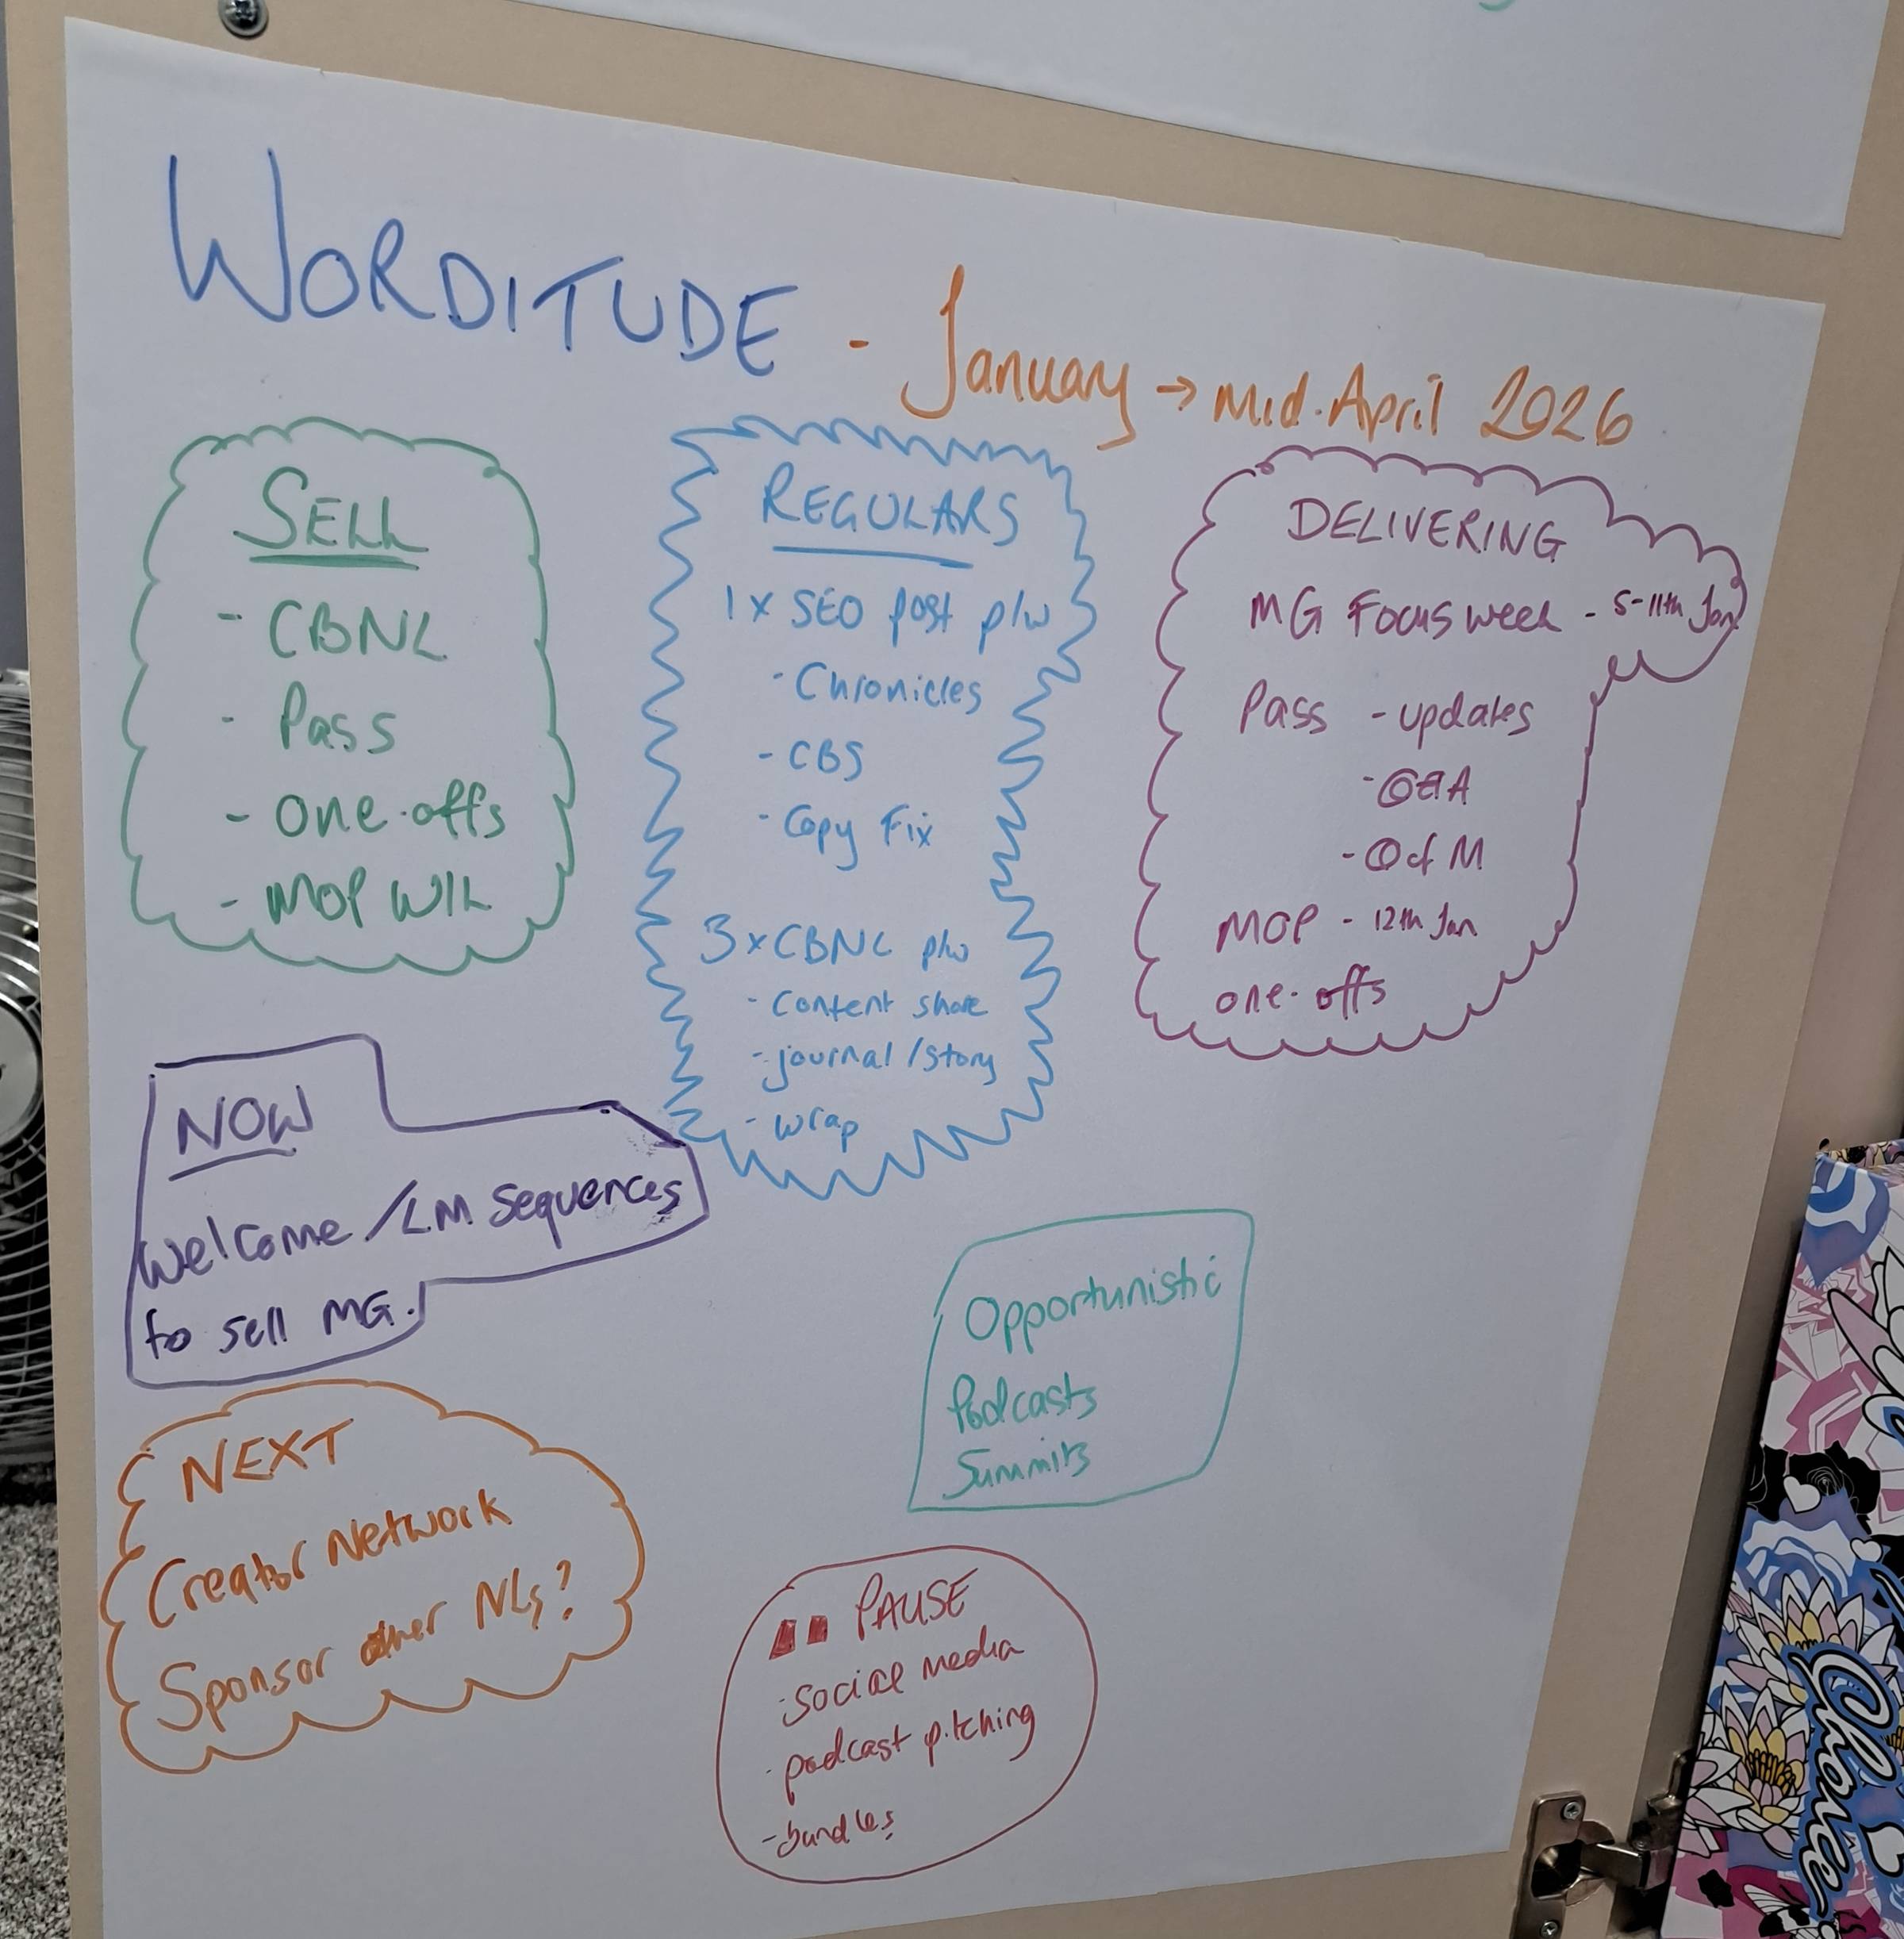 WORDITUDE - January → mid-April 2026
SELL
- CBNL
- Pass
- One-offs
- MOP W/L
REGULARS
1 x SEO post p/w
- Chronicles
- CBS
- Copy Fix
3 x CBNL p/w
- Content share
- journal / story
- wrap
DELIVERING
MG Focus week - 5-11th Jan
Pass - updates
- Q&A
- Q of M
MOP - 12th Jan
one-offs
NOW
Welcome / LM Sequences
to sell MG.
NEXT
Creator Network
Sponsor other NLs?
Opportunistic
Podcasts
Summits
PAUSE
- social media
- podcast pitching
- bundles
Chloe